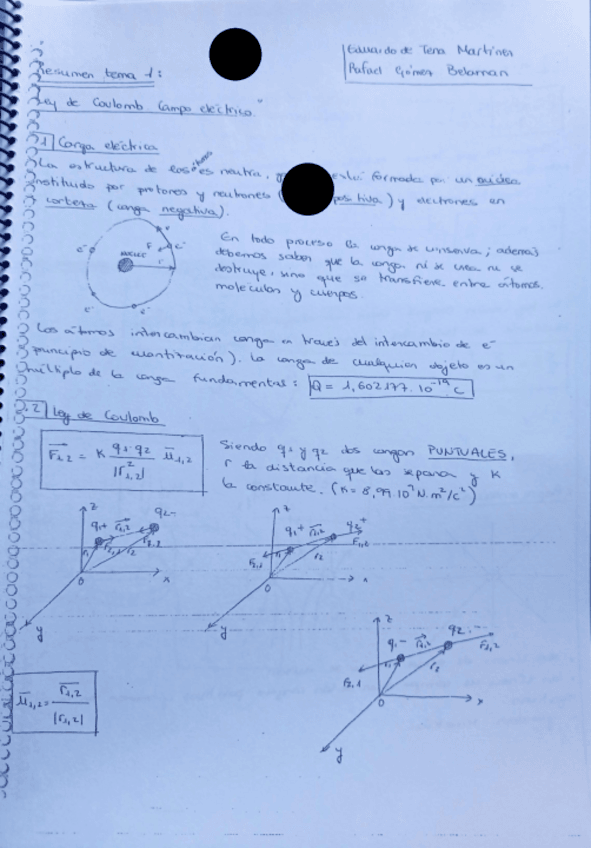 Eduardo de Tena Martínez
Rafael Gómez
Resumen tema 1:
Ley de Coulomb Campo eléctrico"
1 Carga eléctrica
La estructura de los átomos es neutra, está formada por un núcleo
constituido por protones y neutrones ( positiva) y electrones en
corteza (carga negativa).
En todo proceso la carga se conserva; además
debemos saber que la carga ni se crea ni se
destruye, sino que se transfiere entre átomos,
moléculas y cuerpos.
NÚCLEO
e⁻
r
F
v
Los átomos intercambian carga a través del intercambio de e⁻
principio de cuantización). La carga de cualquier objeto es un
múltiplo de la carga fundamental: Q = 1,602177·10⁻¹⁹ C
.2 Ley de Coulomb
F₁,₂ = K q₁·q₂ / |r²₁,₂| u₁,₂
Siendo q₁ y q₂ dos cargas PUNTUALES,
r la distancia que las separa y K
la constante. (K = 8,99·10⁹ N·m²/C²)
z q₁+ r₁,₂ q₂- r₁ r₂ 0 x y
z q₁+ r₁,₂ q₂+ F₁,₂ F₂,₁ r₁ r₂ 0 x y
z q₁- r₁,₂ q₂- F₁,₂ F₂,₁ r₁ r₂ 0 x y
u₁,₂ = r₁,₂ / |r₁,₂|